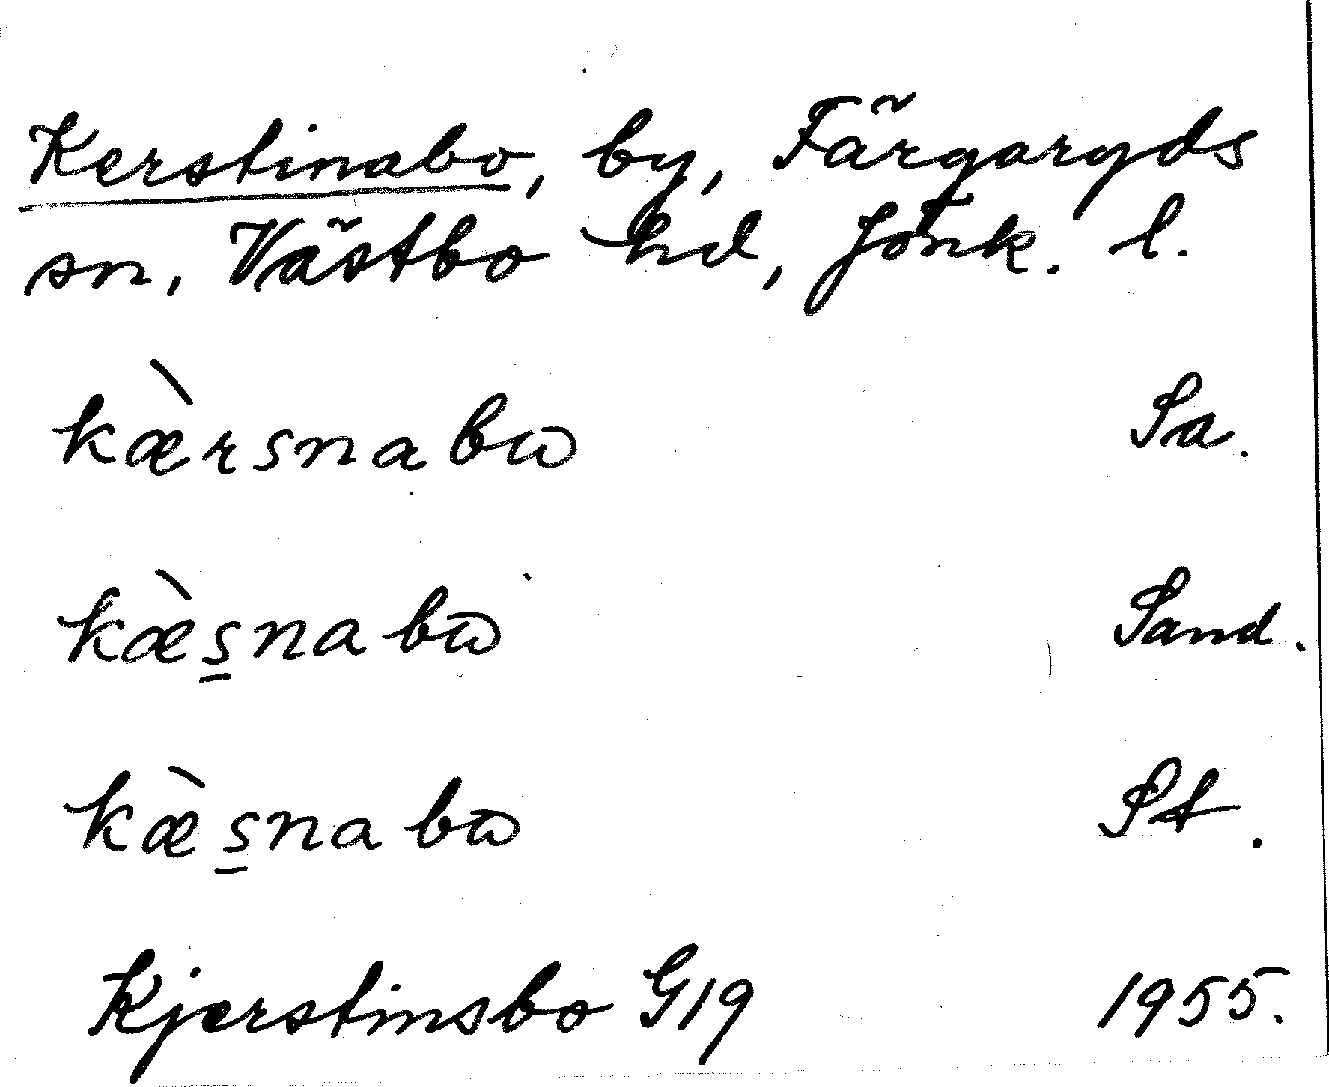 Kerstinabo, by, Färgaryds
sn, Västbo hd, Jönk. l.
kæ̀rsnabω Sa.
kæ̀s̱nabω Sand.
kæ̀s̱nabω St.
Kjerstinsbo G19 1955.